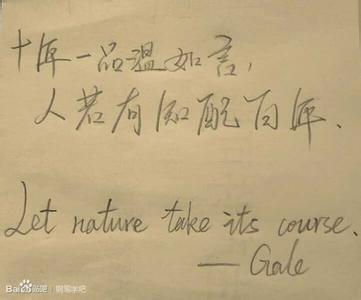 十年一品温如言,
人若有知配百年.
Let nature take its course.
— Gale
Baidu贴吧